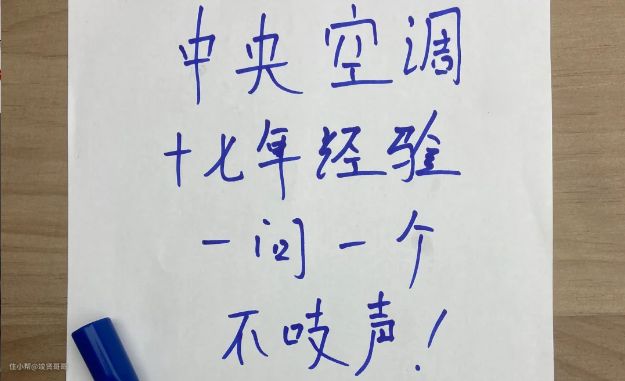 中央空调
十七年经验
一问一个
不吱声！
住小帮@竣贤哥哥